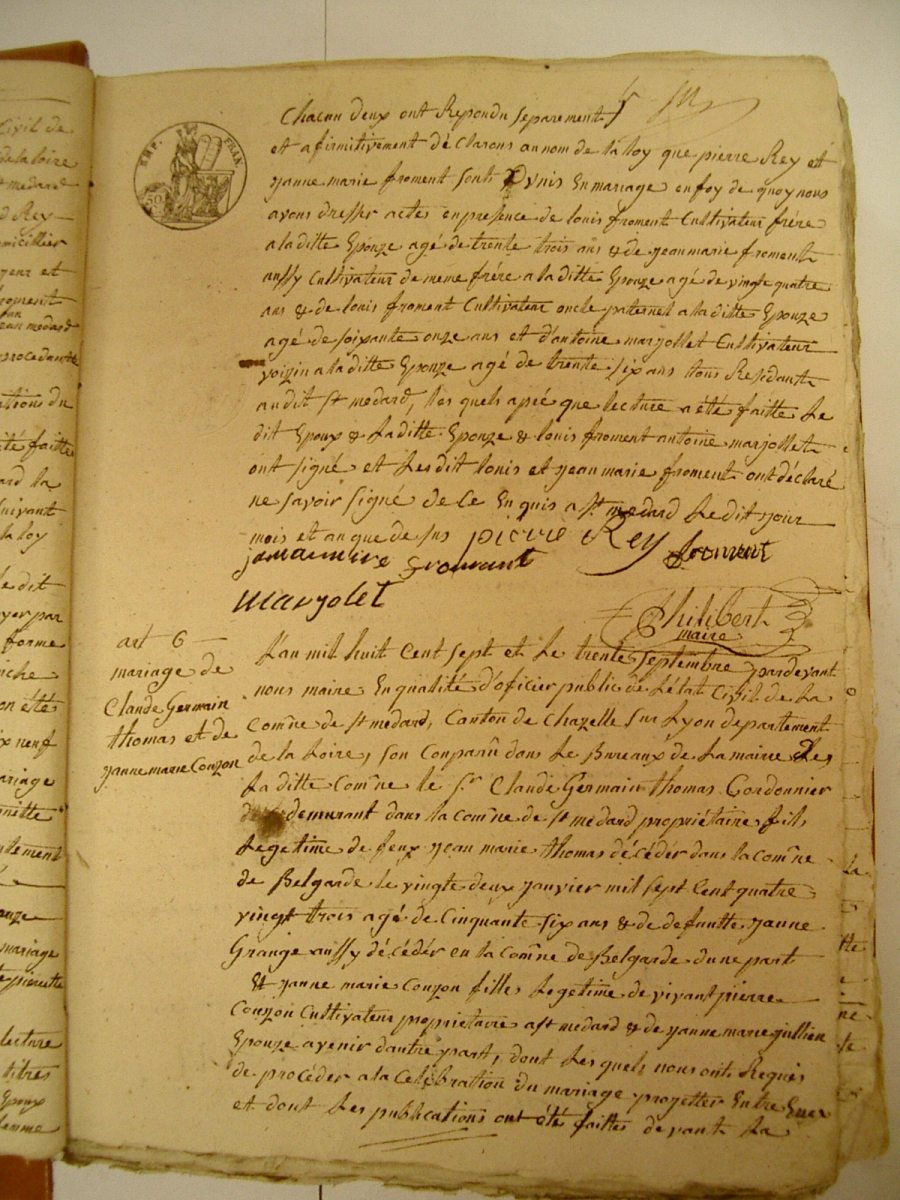 Chacun deux ont Repondu separement
et afirmitivement déclarons au nom de la loy que pierre Rey et
yanne marie froment sonts vnis En mariage en foy de quoy nous
avons dresser actes en presence de louis froment Cultivateur frére
a la ditte Epouze agé de trente trois ans & de yean marie froment
aussy Cultivateur de meme frére a la ditte Epouze agé de vingte quatre
ans & de louis froment Cultivateur oncle paternel a la ditte Epouze
agé de soixante onze ans et d'antoine marjollet Cultivateur
voizin a la ditte Epouze agé de trente six ans tous Residant
au dit st medard, les quels apée que lecture a été faitte Le
dit Epoux & La ditte Epouze & louis froment antoine marjollet
ont signé et Les dit louis et yean marie froment ont déclaré
ne savoir signé de ce En quis a st medard Le dit your
mois et an que de sus pierre Rey froment
froment
maryolet
Philibert
maire
art 6
mariage de
Claude Germain
thomas et de
yanne marie Couzon
L'an mil huit Cent sept et Le trente septembre pardevant
nous maire En qualité d'oficier public de L'état Civil de La
Comne de st medard, Canton de Chazelle sur Lyon departement
de la Loire, son Conparû dans Le Bureaux de La mairie De
La ditte Comne le sr Claude Germain thomas Cordonnier
demurant dans la comne de st medard propriétaire, fils
Legetime de feux yean marie thomas décéder dans la comne
de Belgarde le vingte deux janvier mil sept Cent quatre
vingt trois agé de Cinquante six ans & de defuntte yanne
Grange aussy décéder en la comne de Belgarde d'une part
Et yanne marie Couzon filles Legetime de vivant pierre
Couzon Cultivateur propriétaire a st medard & de yanne marie gullien
Epouze avenir d'autre part, dont Les quels nous ont Requis
de procéder a la Celébration du mariage progetter Entre Euex
et dont Les publications ont été faittes devant La
EMP. FRAN
50
Civil de
de la loire
st medard
Rey
froment
jean medard
procedante
ations du
faitte
la
suivant
la loy
le dit
par
forme
ont étés
neuf
mariage
Epouze
mariage
pierette
lecture
titres
Epoux